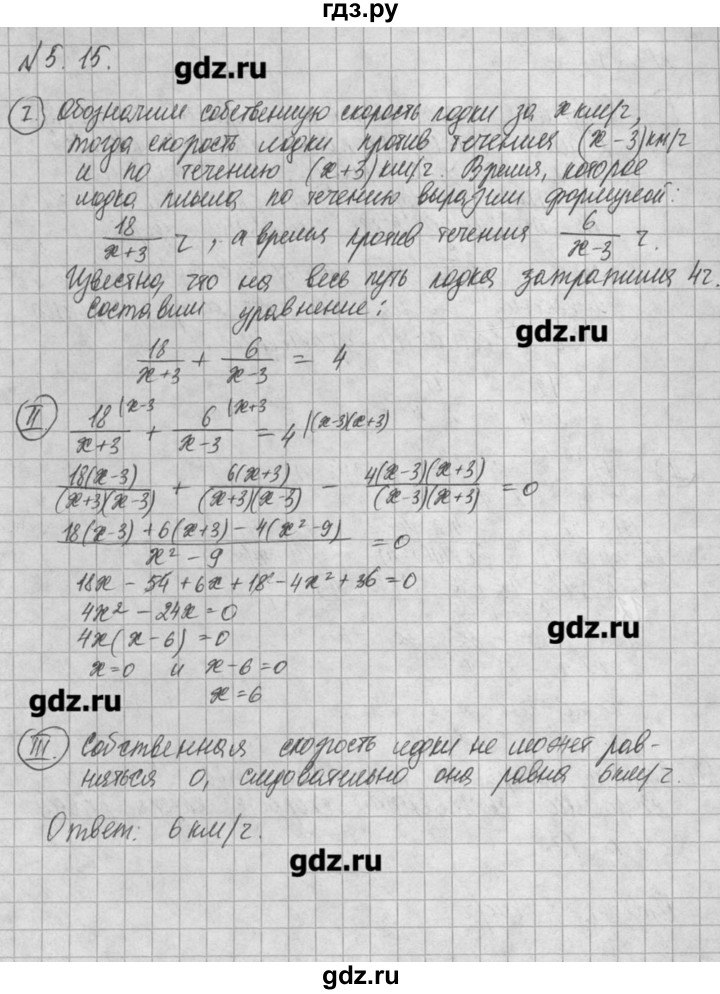 гдз.ру
№5.15.
gdz.ru
I. Обозначим собственную скорость лодки за x км/ч,
тогда скорость лодки против течения (x-3)км/ч
и по течению (x+3)км/ч. Время, которое
лодка плыла по течению выразим формулой:
18/(x+3) ч, а время против течения 6/(x-3) ч.
Известно, что на весь путь лодка затратила 4ч.
Составим уравнение:
gdz.ru
18/(x+3) + 6/(x-3) = 4
II 18/(x+3) |x-3 + 6/(x-3) |x+3 = 4 |(x-3)(x+3)
18(x-3)/((x+3)(x-3)) + 6(x+3)/((x+3)(x-3)) - 4(x-3)(x+3)/((x-3)(x+3)) = 0
(18(x-3)+6(x+3)-4(x²-9))/(x²-9) = 0
18x-54+6x+18-4x²+36=0
4x²-24x=0
4x(x-6)=0
gdz.ru
x=0 и x-6=0
x=6
gdz.ru
III. Собственная скорость лодки не может рав-
няться 0, следовательно она равна 6км/ч.
Ответ: 6км/ч.
gdz.ru
gdz.ru